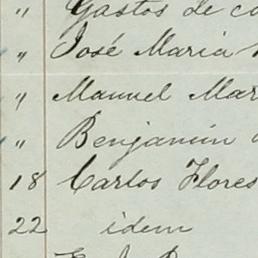 " Gastos de
" José Maria
" Manuel Mar
" Benjamin
18 Carlos Flores
22 idem